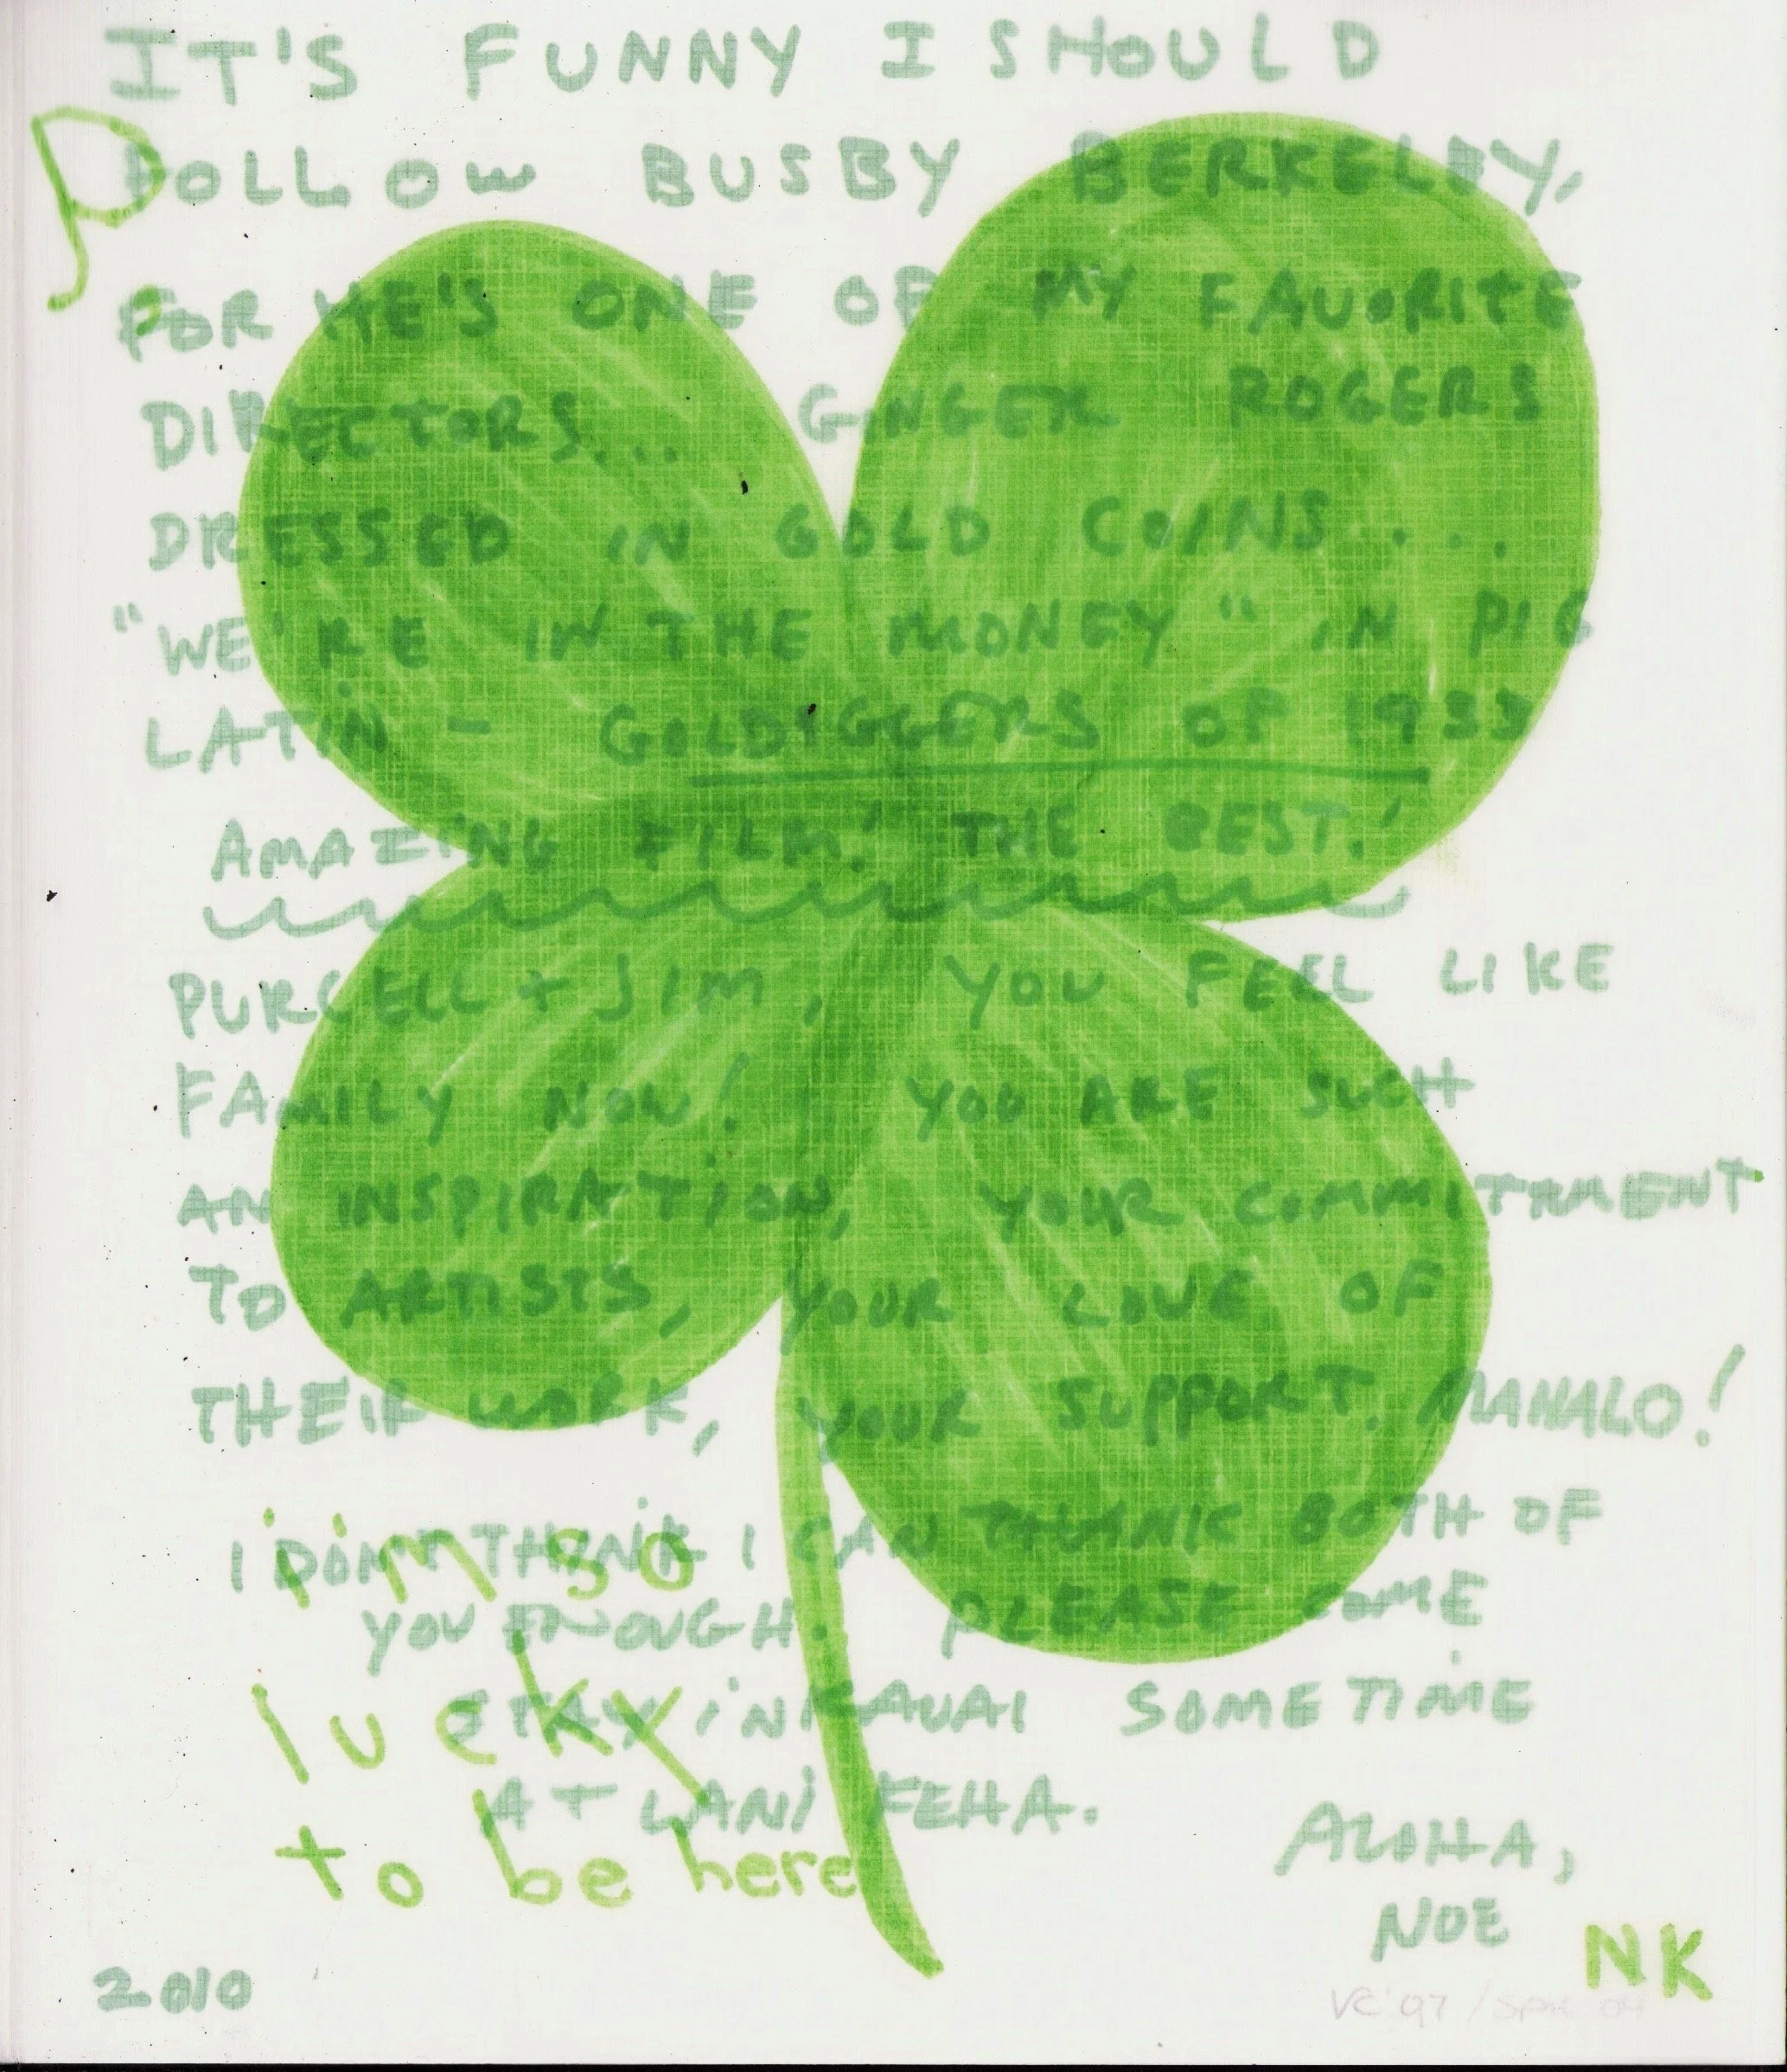 IT'S FUNNY I SHOULD
FOLLOW BUSBY BERKELEY,
FOR HE'S ONE OF MY FAVORITE
DIRECTORS... GINGER ROGERS
DRESSED IN GOLD COINS....
"WE'RE IN THE MONEY" IN PIG
LATIN - GOLDIGGERS OF 1933
AMAZING FILM! THE BEST!
PURCELL + JIM, YOU FEEL LIKE
FAMILY NOW! YOU ARE SUCH
AN INSPIRATION, YOUR COMMITMENT
TO ARTISTS, YOUR LOVE OF
THEIR WORK, YOUR SUPPORT. MAHALO!
I DON'T THINK I CAN THANK BOTH OF
YOU ENOUGH. PLEASE COME
STAY IN KAUAI SOMETIME
AT LANI KEHA.
ALOHA,
NOE
i'm so
lucky
to be here
NK
2010
VC '97 /